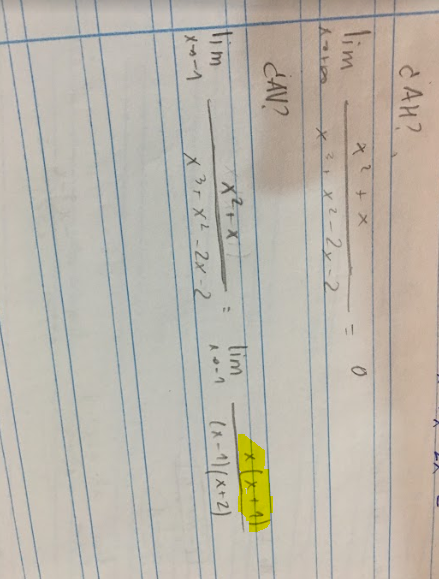 ¿AH?
lim x→+∞ (x² + x)/(x³ + x² - 2x - 2) = 0
¿AV?
lim x→-1 (x² + x)/(x³ + x² - 2x - 2) = lim x→-1 x(x+1)/(x-1)(x+2)